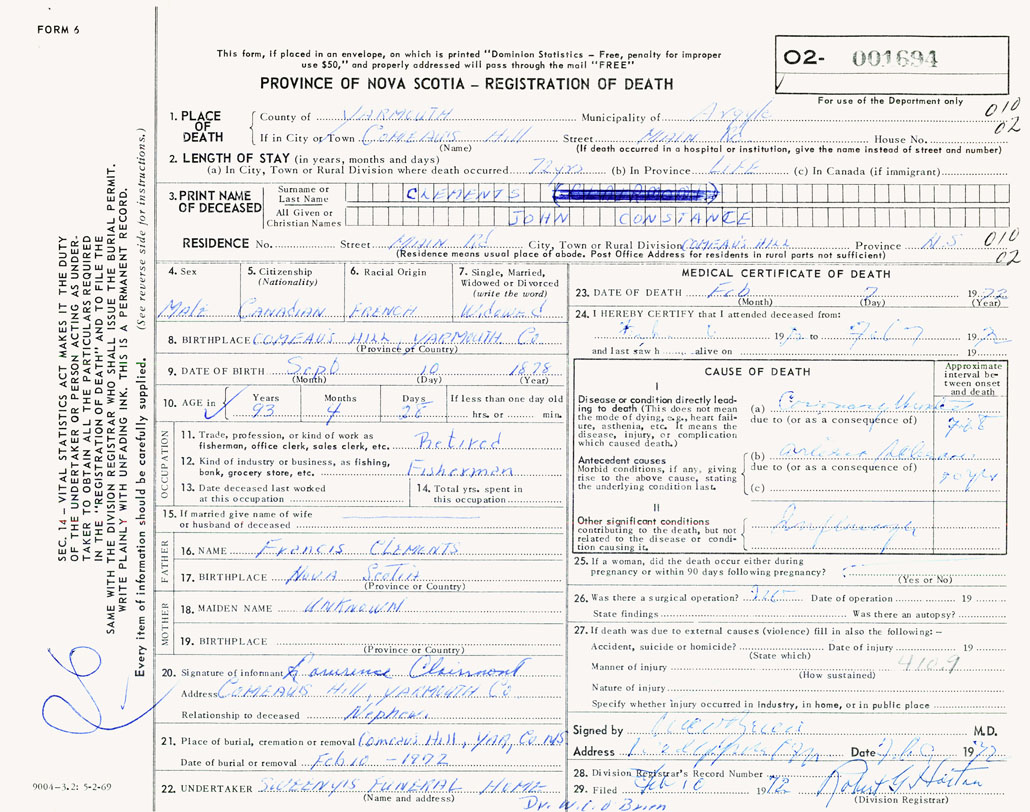 FORM 6
This form, if placed in an envelope, on which is printed "Dominion Statistics – Free, penalty for improper
use $50," and properly addressed will pass through the mail "FREE"
PROVINCE OF NOVA SCOTIA – REGISTRATION OF DEATH
02- 001694
For use of the Department only
010
02
1. PLACE OF DEATH
County of YARMOUTH Municipality of Argyle
If in City or Town COMEAUS Hill Street MAIN Rd. House No.
(Name) (If death occurred in a hospital or institution, give the name instead of street and number)
2. LENGTH OF STAY (in years, months and days)
(a) In City, Town or Rural Division where death occurred 72yrs (b) In Province LIFE (c) In Canada (if immigrant)
3. PRINT NAME OF DECEASED
Surname or Last Name CLEMENTS
All Given or Christian Names JOHN CONSTANCE
RESIDENCE No. Street MAIN Rd City, Town or Rural Division COMEAU'S HILL Province N.S 010
(Residence means usual place of abode. Post Office Address for residents in rural parts not sufficient) 02
4. Sex
Male
5. Citizenship
(Nationality)
Canadian
6. Racial Origin
FRENCH
7. Single, Married,
Widowed or Divorced
(write the word)
Widowed
8. BIRTHPLACE COMEAU'S HILL, YARMOUTH Co
(Province or Country)
9. DATE OF BIRTH Sept 10 1878
(Month) (Day) (Year)
10. AGE in
Years 93
Months 4
Days 28
If less than one day old
hrs. or min.
OCCUPATION
11. Trade, profession, or kind of work as
fisherman, office clerk, sales clerk, etc. Retired
12. Kind of industry or business, as fishing,
bank, grocery store, etc. Fisherman
13. Date deceased last worked
at this occupation
14. Total yrs. spent in
this occupation
15. If married give name of wife
or husband of deceased
FATHER
16. NAME Francis CLEMENTS
17. BIRTHPLACE Nova Scotia
(Province or Country)
MOTHER
18. MAIDEN NAME UNKNOWN
19. BIRTHPLACE
(Province or Country)
20. Signature of informant Lawrence Clairmont
Address COMEAUS Hill, YARMOUTH Co
Relationship to deceased Nephew.
21. Place of burial, cremation or removal Comeaus Hill, YAR, Co. NS
Date of burial or removal Feb 10 - 1972
22. UNDERTAKER SWEENYS FUNERAL HOME
(Name and address)
Dr. W.C. O'Brien
MEDICAL CERTIFICATE OF DEATH
23. DATE OF DEATH Feb 7 1972
(Month) (Day) (Year)
24. I HEREBY CERTIFY that I attended deceased from:
19 to 19
and last saw h alive on 19
CAUSE OF DEATH
Approximate
interval be-
tween onset
and death
I
Disease or condition directly lead-
ing to death (This does not mean
the mode of dying, e.g., heart failure,
asthenia, etc. It means the
disease, injury, or complication
which caused death.)
(a) Coronary
due to (or as a consequence of)
Antecedent causes
Morbid conditions, if any, giving
rise to the above cause, stating
the underlying condition last.
(b)
due to (or as a consequence of)
(c)
II
Other significant conditions
contributing to the death, but not
related to the disease or condi-
tion causing it.
25. If a woman, did the death occur either during
pregnancy or within 90 days following pregnancy?
(Yes or No)
26. Was there a surgical operation? Date of operation 19
State findings Was there an autopsy?
27. If death was due to external causes (violence) fill in also the following: –
Accident, suicide or homicide? Date of injury 19
(State which)
Manner of injury 410.9
(How sustained)
Nature of injury
Specify whether injury occurred in industry, in home, or in public place
Signed by M.D.
Address Date 1972
28. Division Registrar's Record Number
29. Filed Feb 10 1972 Robert G
(Division Registrar)
SEC. 14 – VITAL STATISTICS ACT MAKES IT THE DUTY
OF THE UNDERTAKER OR PERSON ACTING AS UNDER-
TAKER TO OBTAIN ALL THE PARTICULARS REQUIRED
IN THE "REGISTRATION OF DEATH" AND TO FILE THE
SAME WITH THE DIVISION REGISTRAR WHO SHALL ISSUE THE BURIAL PERMIT.
WRITE PLAINLY WITH UNFADING INK. THIS IS A PERMANENT RECORD.
Every item of information should be carefully supplied. (See reverse side for instructions.)
9004-3.2: 5-2-69